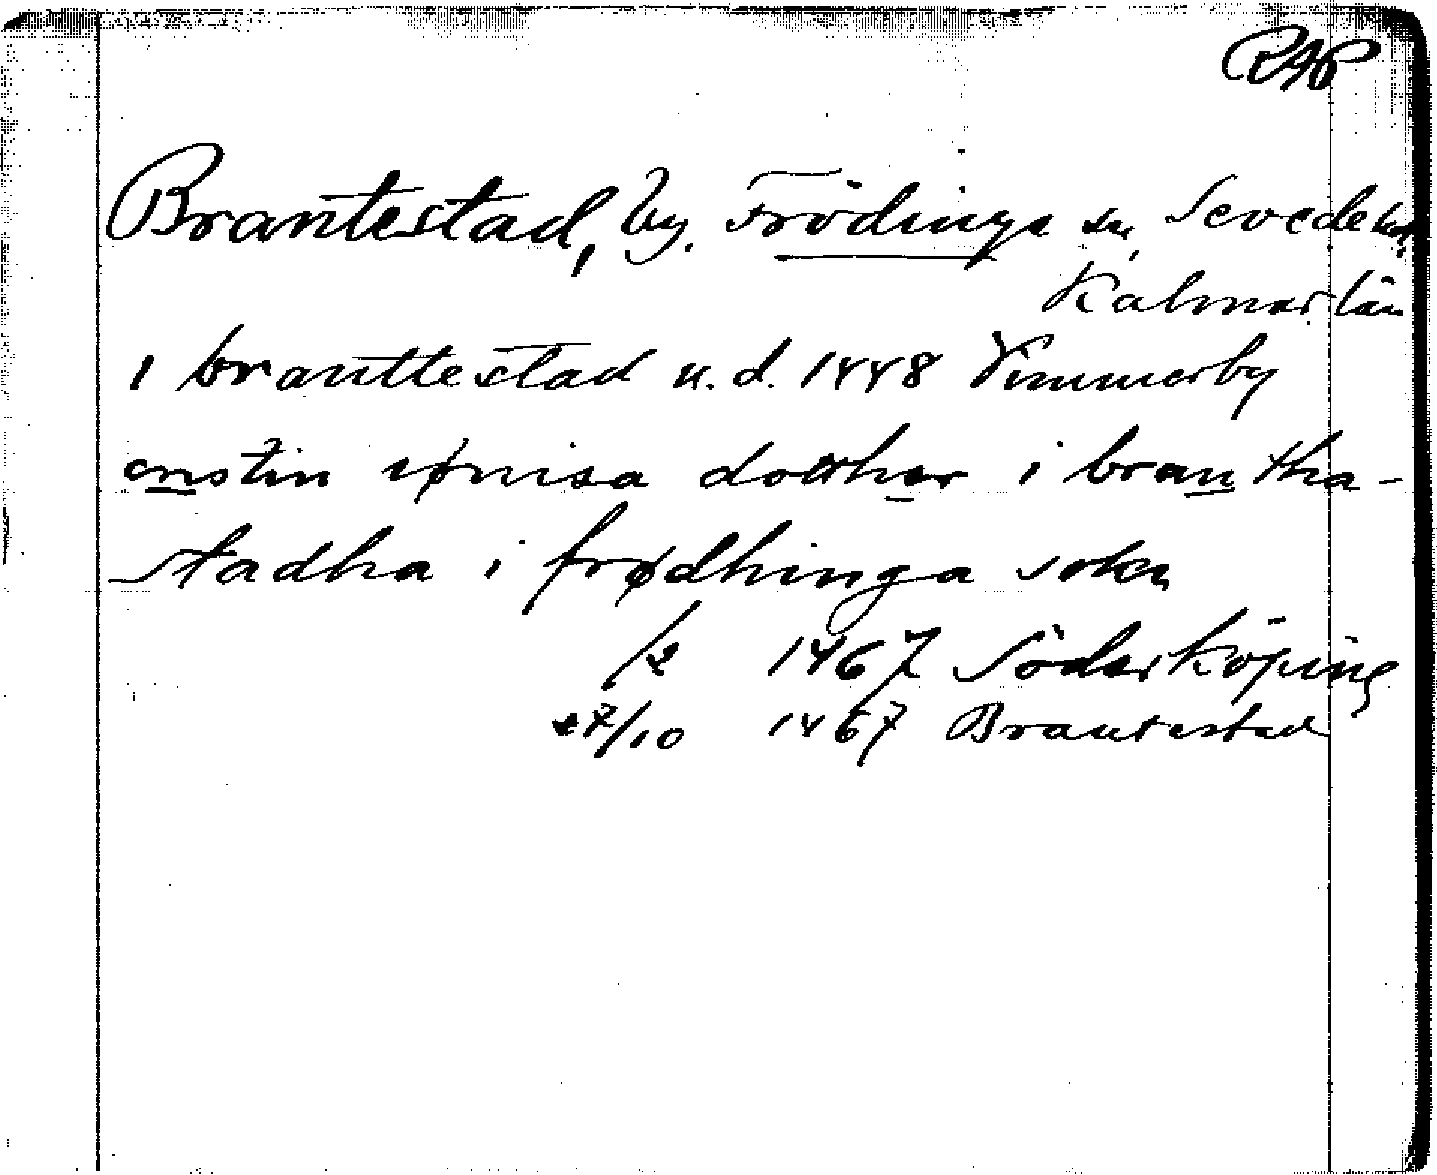 RAP
Brantestad, by. Frödinge sn, Sevede hd,
Kalmar län
i branttestad u. d. 1448 Vimmerby
cristin iønisa dotther i brantha-
stadha i frødhinga sokn
/2 1467 Söderköping
27/10 1467 Brantestad